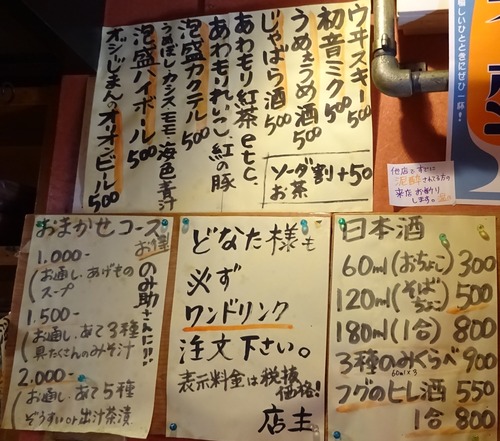 ウヰスキー 500
初音ミク 500
うめぇうめ酒 500
じゃばら酒 500
あわもり紅茶etc.
あわもりれいこ、紅の豚
泡盛カクテル 500
うまぼし・カシスモモ・海色・青汁
泡盛ハイボール 500
オジじまんのオリオンビール 500
ソーダ割 +50
お茶
他店ですでに
泥酔されてる方の
来店お断り
します。
嬉しいひとときにぜひ一杯!
おまかせコース
お得 のみ助さんに!!
1.000-
(お通し、あげもの
スープ
1.500-
(お通し、あて3種
具たくさんのみそ汁
2.000-
(お通し、あて5種
ぞうすいor出汁茶漬
どなた様も
必ず
ワンドリンク
注文下さい。
表示料金は税抜
価格!
店主
日本酒
60ml(おちょこ) 300
120ml(そばちょこ) 500
180ml(1合) 800
3種のみくらべ 900
60ml×3
フグのヒレ酒 550
1合 800